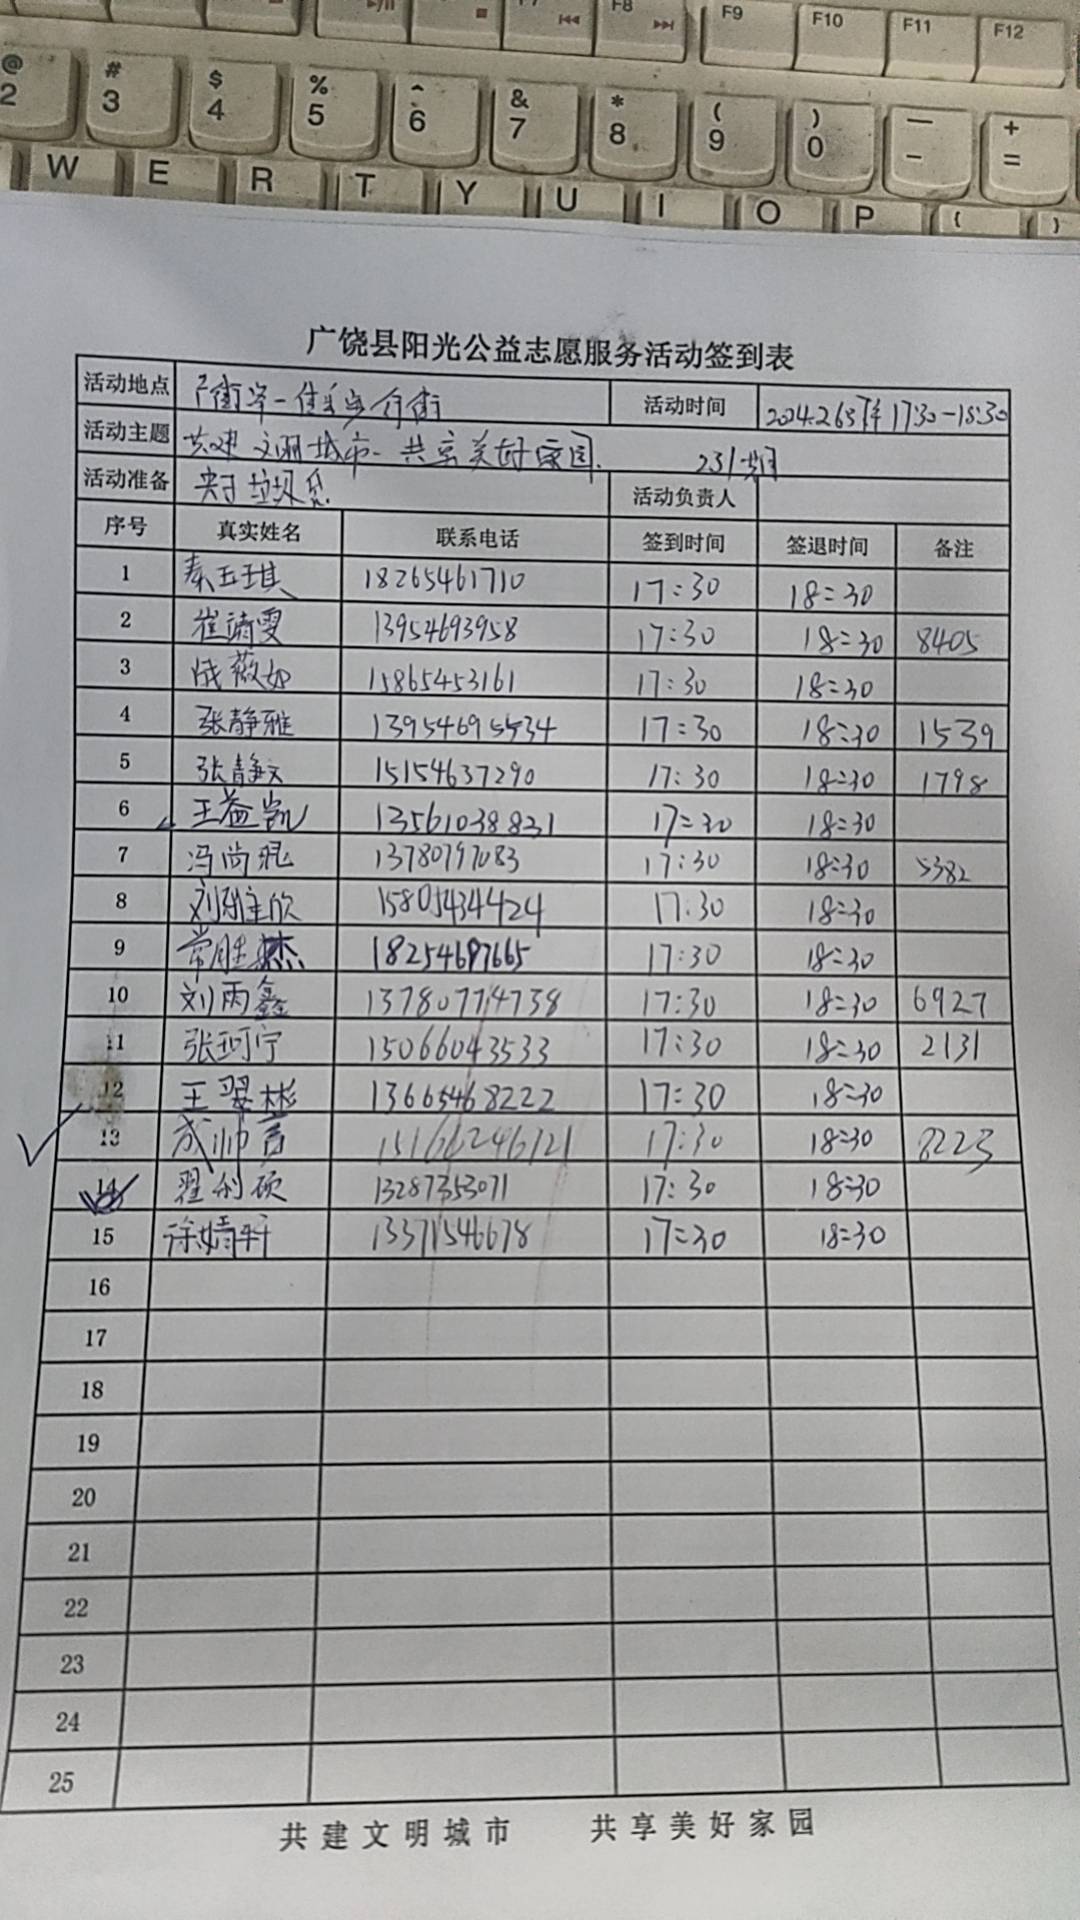 F7 F8 F9 F10 F11 F12
@ # $ % ^ & * ( ) — +
2 3 4 5 6 7 8 9 0 - =
W E R T Y U I O P { }
广饶县阳光公益志愿服务活动签到表
活动地点 步行街 活动时间 2024.2.6 17:30-18:30
活动主题 共建文明城市-共享美好家园. 231期
活动准备 夹子 垃圾袋 活动负责人
序号 真实姓名 联系电话 签到时间 签退时间 备注
1 秦玉琪 18265461710 17:30 18:30
2 崔靖雯 13954693958 17:30 18:30 8405
3 薇如 15865453161 17:30 18:30
4 张静雅 13954695534 17:30 18:30 1539
5 张静文 15154637290 17:30 18:30 1798
6 王益凯 13561038831 17:30 18:30
7 冯尚昆 13780797083 17:30 18:30 5382
8 刘 欣 15805434424 17:30 18:30
9 常胜杰 18254697665 17:30 18:30
10 刘雨鑫 13780774738 17:30 18:30 6927
11 张珂宁 15066043533 17:30 18:30 2131
12 王翌彬 13665468222 17:30 18:30
13 成帅言 15166246721 17:30 18:30 8223
14 翟利硕 13287353071 17:30 18:30
15 徐婧轩 13371546678 17:30 18:30
16
17
18
19
20
21
22
23
24
25
共建文明城市 共享美好家园